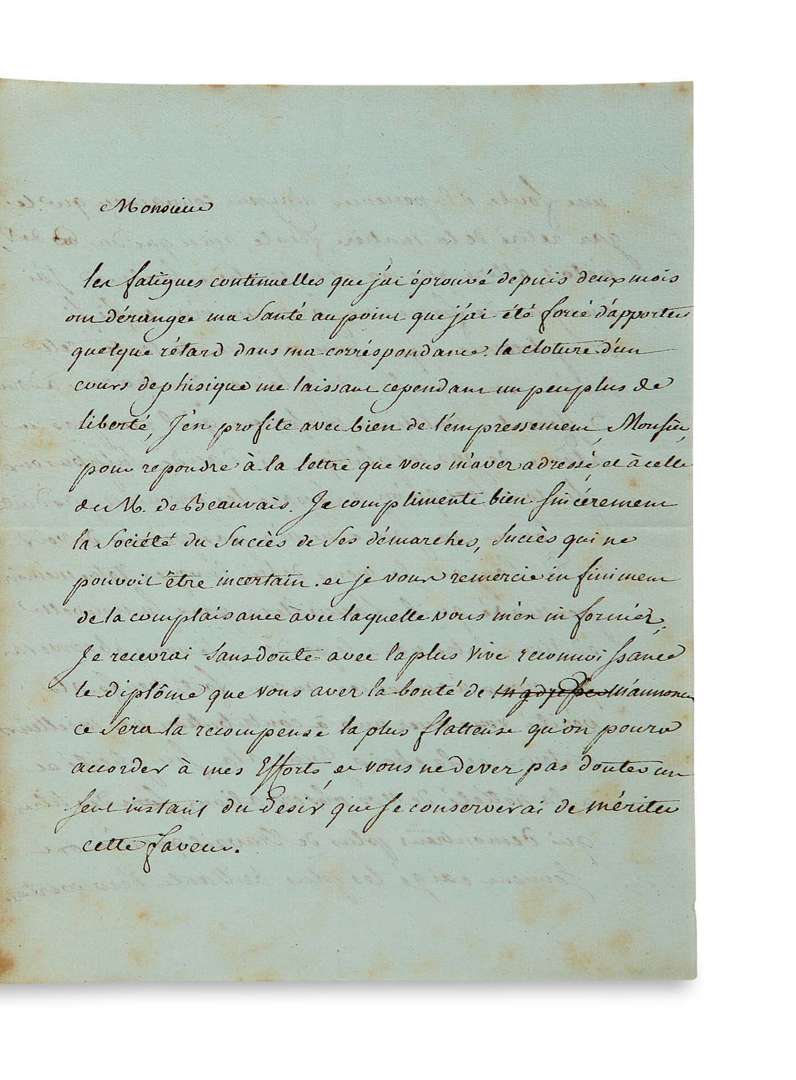 Monsieur
les fatigues continuelles que j'ai éprouvé depuis deux mois
ont dérangée ma Santé au point que j'ai été forcé d'apporter
quelque rétard dans ma corréspondance. la cloture d'un
cours de phisique me laissant cependant un peu plus de
liberté, J'en profite avec bien de l'empressement, Monsieur,
pour repondre à la lettre que vous m'avez adressé, et à celle
de M. de Beauvais. Je complimente bien sincèrement
la Société du Succès de Ses démarches, Succès qui ne
pouvoit être incertain. et je vous remercie infiniment
de la complaisance avec laquelle vous m'en informez,
Je recevrai Sans doute avec la plus vive reconnoissance
le diplôme que vous avez la bonté de m'annoncer
ce Sera la recompense la plus flatteuse qu'on pourra
accorder à mes Efforts, et vous ne devez pas douter un
seul instant du Desir que Je conserverai de mériter
cette faveur.